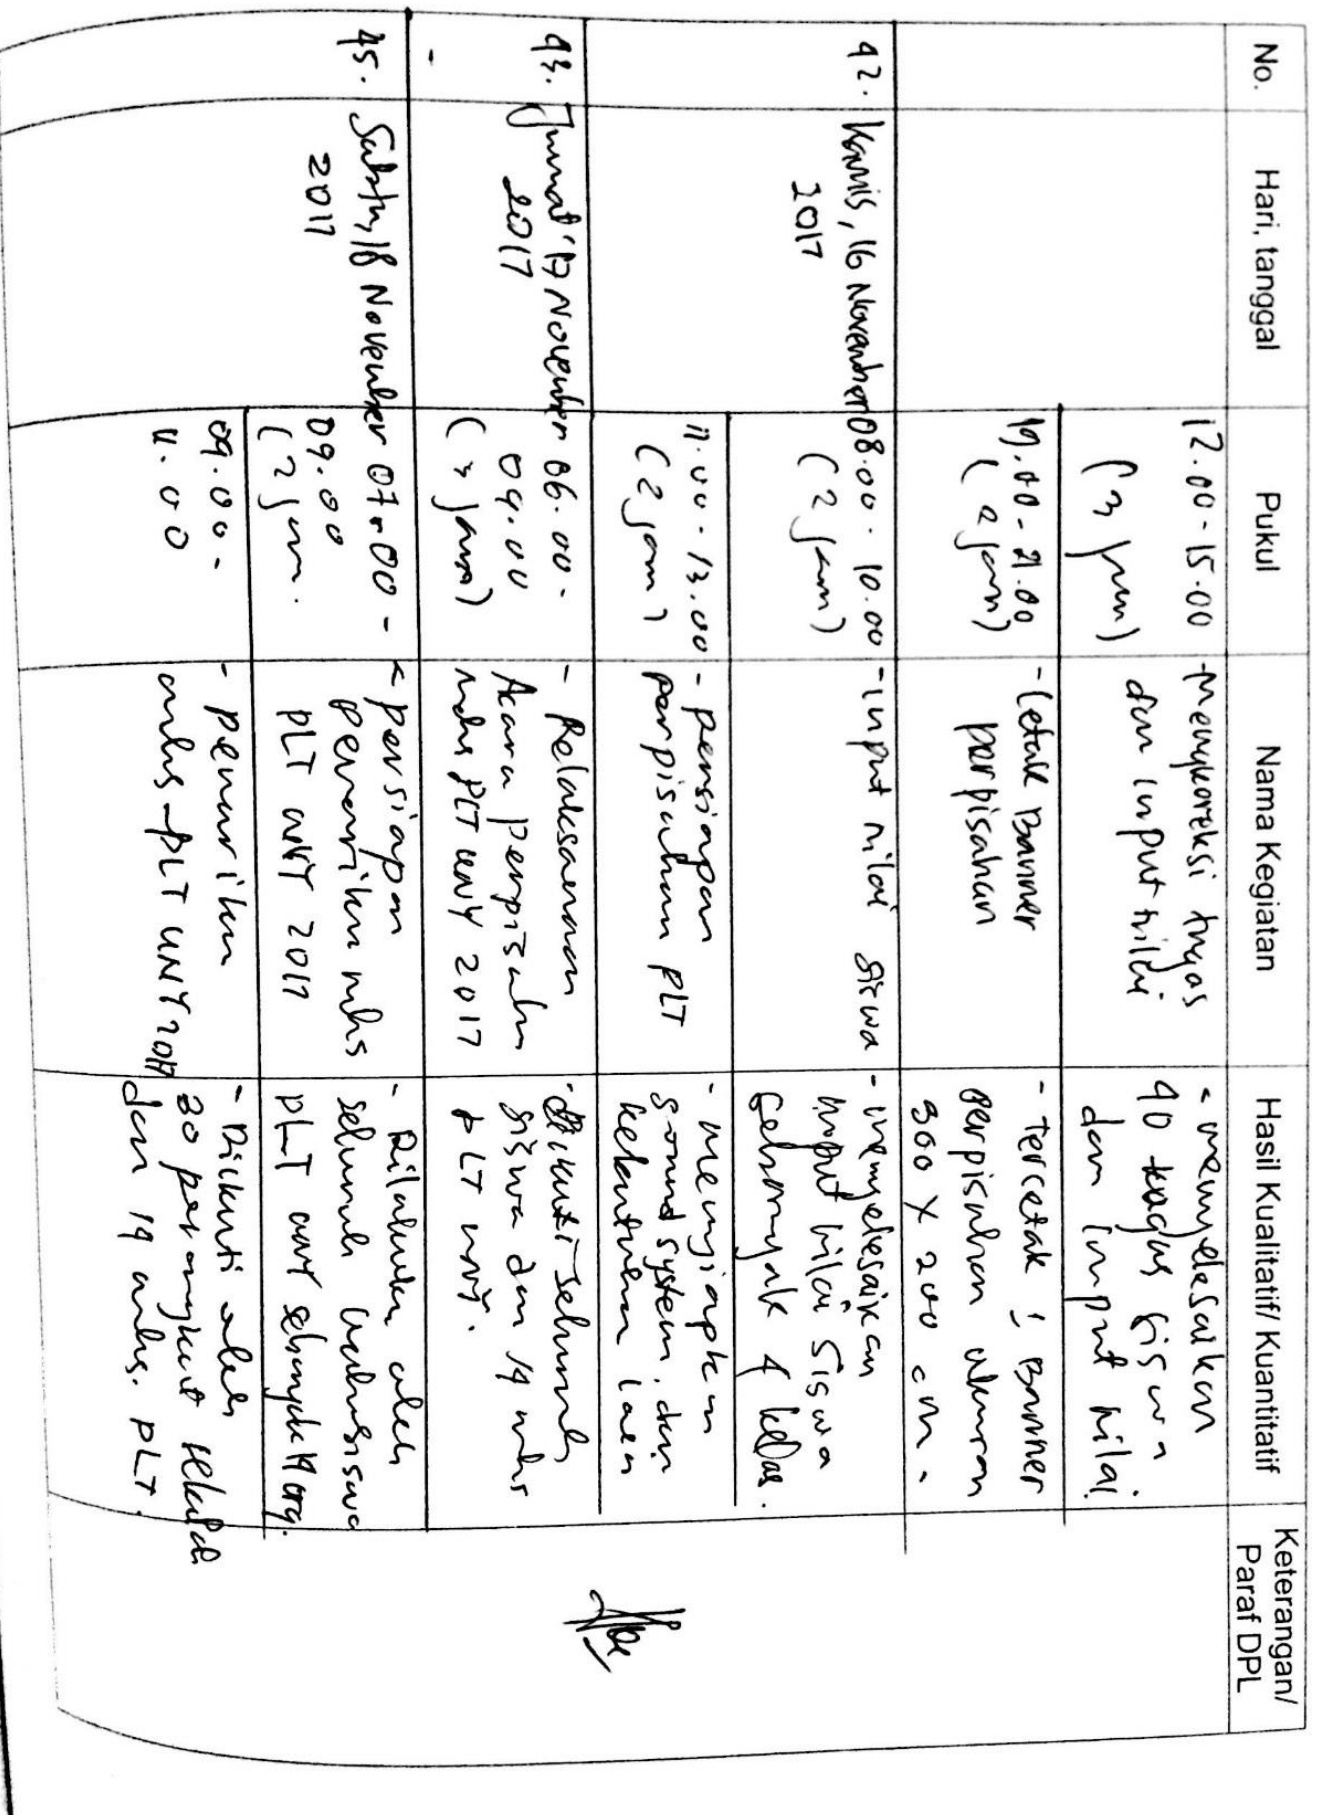 No.
Hari, tanggal
Pukul
Nama Kegiatan
Hasil Kualitatif/ Kuantitatif
Keterangan/
Paraf DPL
12.00-15.00
(3 jam)
- Mengkoreksi tugas
dan input nilai
- menyelesaikan
40 tugas siswa
dan input nilai.
19.00-21.00
(2 jam)
- Cetak Banner
perpisahan
- Tercetak 1 Banner
perpisahan ukuran
300 X 200 cm.
42.
Kamis, 16 November
2017
08.00. 10.00
(2 jam)
- input nilai siswa
- menyelesaikan
input nilai siswa
sebanyak 4 kelas.
11.00-13.00
(2 jam)
- persiapan
perpisahan PLT
- menyiapkan
sound system, dan
43.
Jumat, 17 November
2017
06.00-
09.00
(3 jam)
- Pelaksanaan
Acara perpisahan
mhs PLT UNY 2017
- diikuti seluruh
siswa dan 19 mhs
PLT UNY.
-
45.
Sabtu, 18 November
2017
07.00-
09.00
(2 jam.
- persiapan
penarikan mhs
PLT UNY 2017
- Dilakukan oleh
seluruh mahasiswa
PLT UNY sebanyak 19 org.
09.00-
11.00
- penarikan
mhs PLT UNY 2017
- Diikuti oleh
30 perangkat sekolah
dan 19 mhs. PLT.